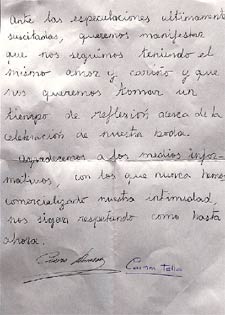 Ante las especulaciones ultimamente
suscitadas, queremos manifestar
que nos seguimos teniendo el
mismo amor y cariño y que
sus queremos tomar un
tiempo de reflexión acerca de la
celebración de nuestra boda.
Agradecemos a los medios infor-
mativos, con los que nunca hemos
comercializado nuestra intimidad,
nos sigan respetando como hasta
ahora.
Carmen Tello